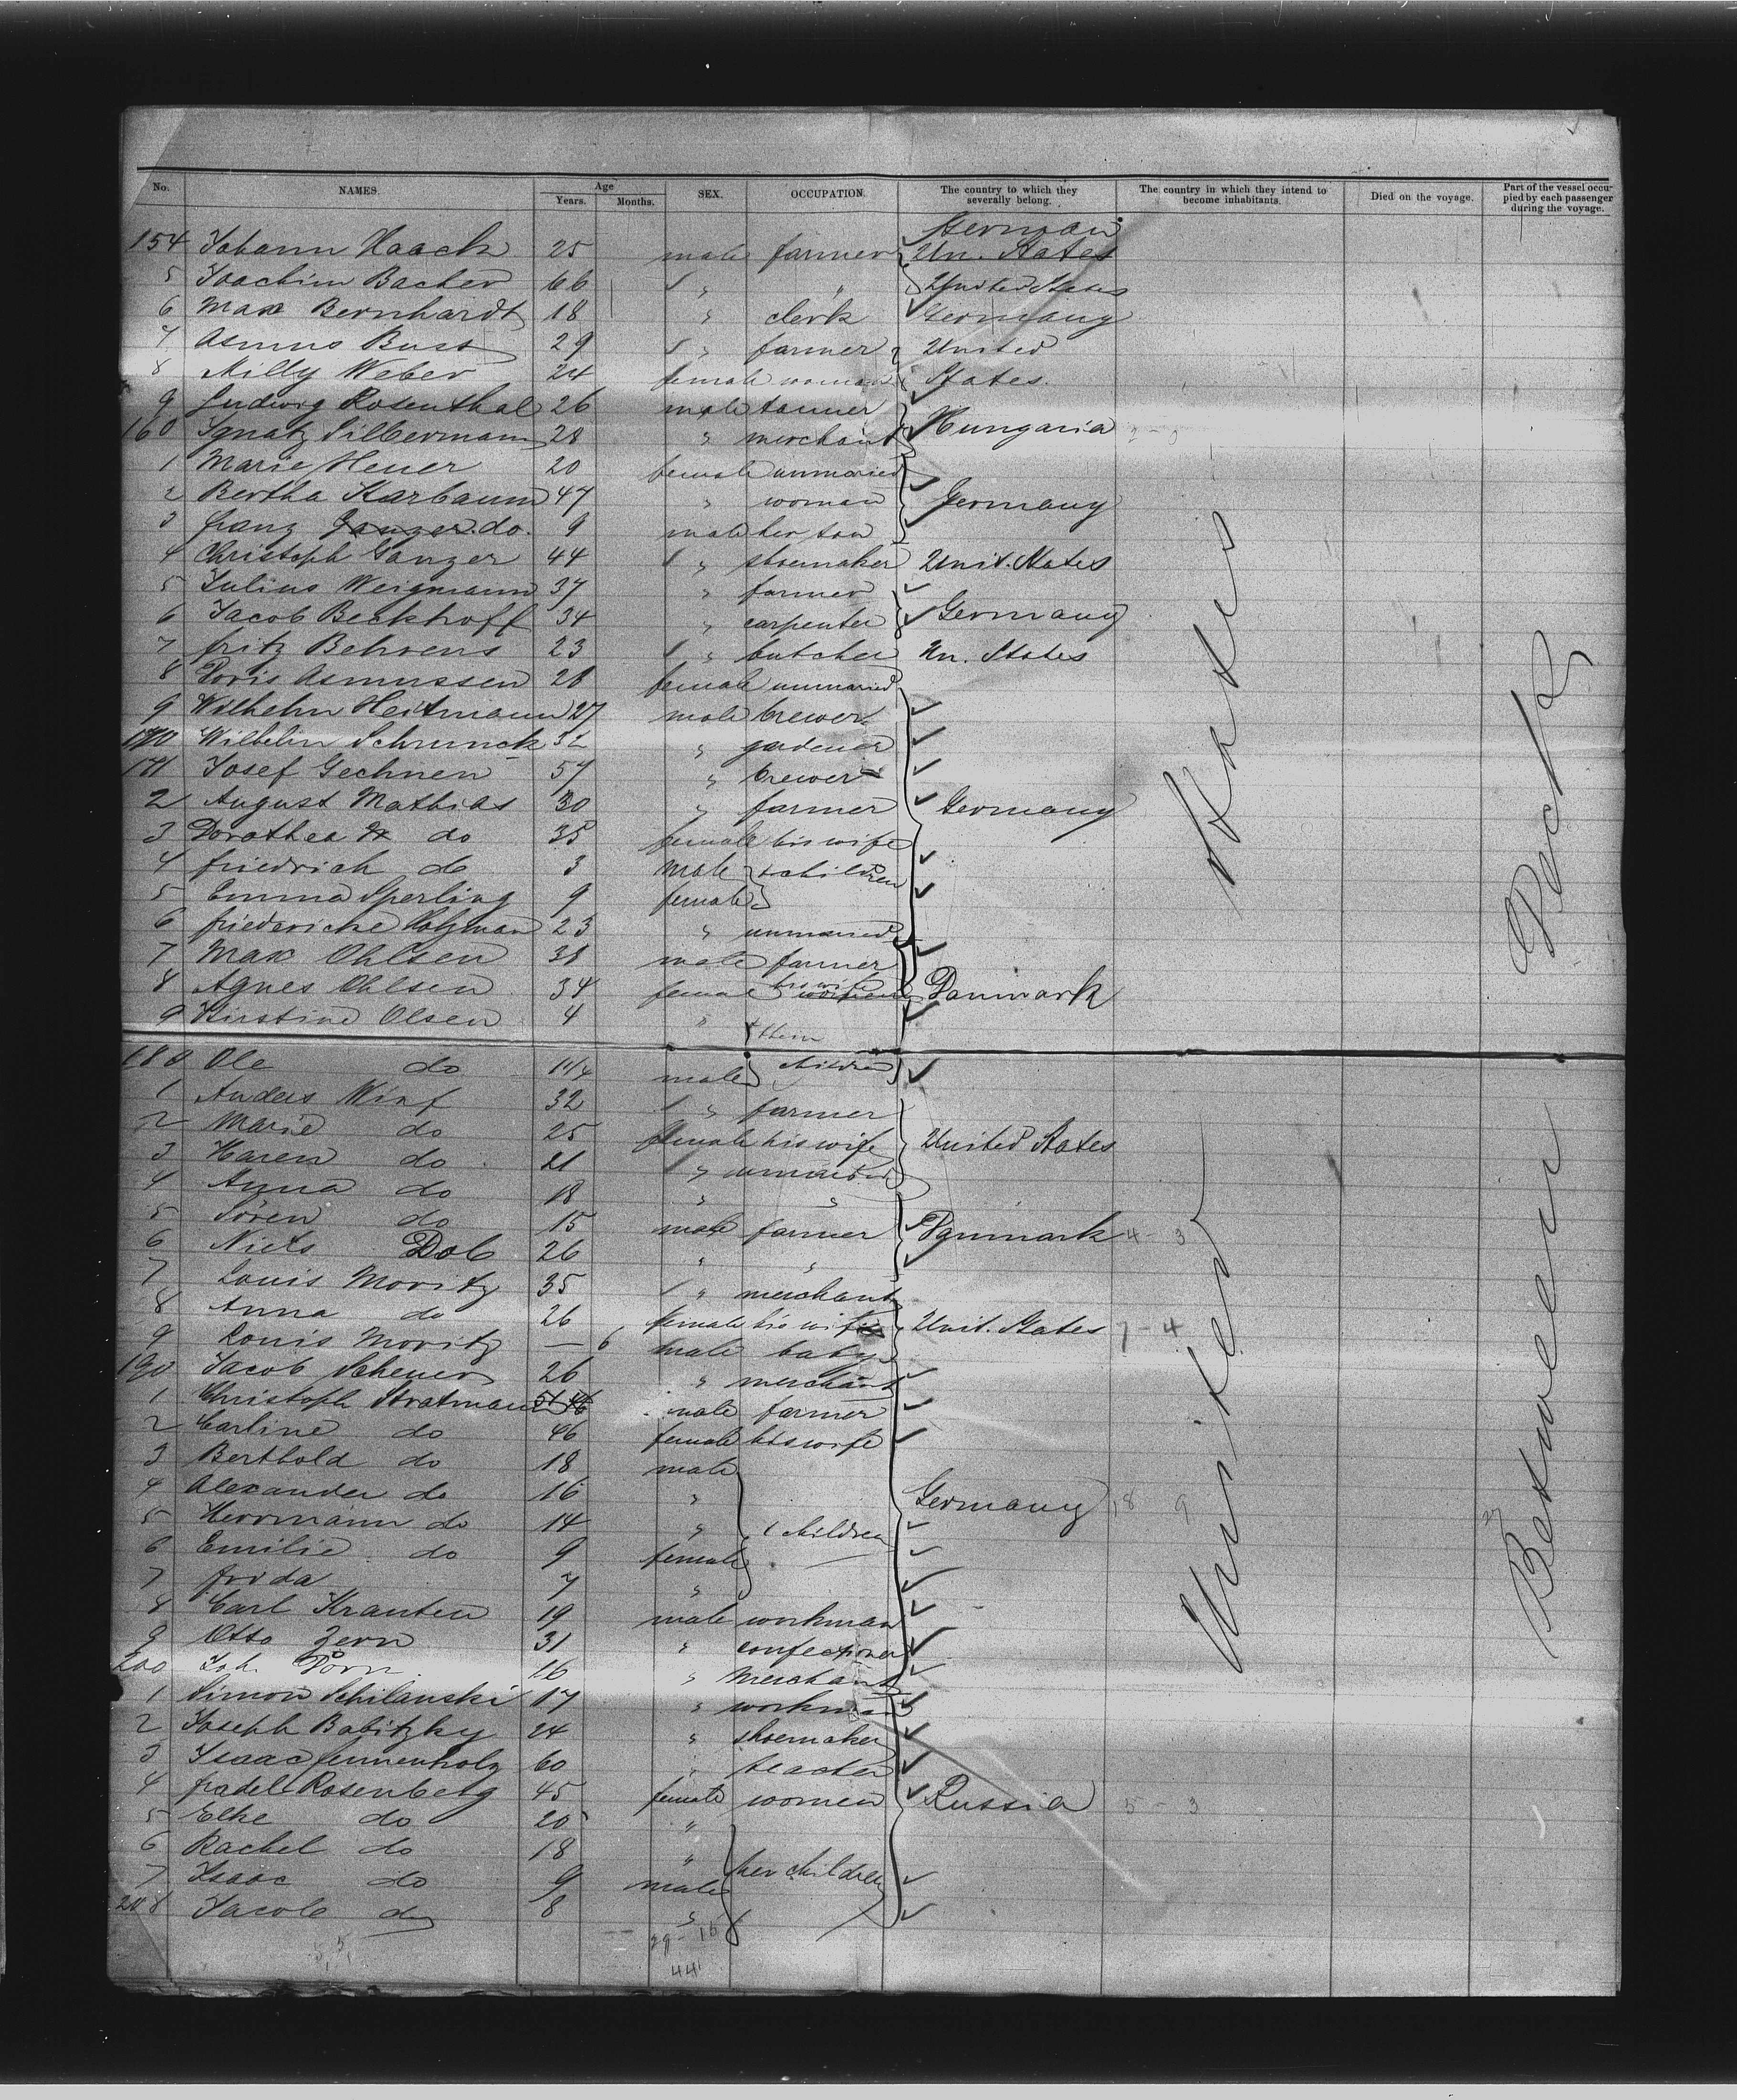 No. NAMES. Age Years. Months. SEX. OCCUPATION. The country to which they severally belong. The country in which they intend to become inhabitants. Died on the voyage. Part of the vessel occupied by each passenger during the voyage.
German
154 Johann Haack 25 male farmer Un. States
5 Joachim Bacher 66 " " United States
6 Max Bernhardt 18 " clerk Germany
7 Asmus Bust 29 " farmer United
8 Milly Weber 24 female woman States.
9 Ludwig Rosenthal 26 male tanner
160 Ignatz Silbermann 28 " merchant Hungaria
1 Marie Heuer 20 female unmaried
2 Bertha Karbaum 47 " woman Germany
3 Franz Ganzer do. 9 male her son
4 Christoph Ganzer 44 " shoemaker Unit. States
5 Julius Weigmann 37 " farmer
6 Jacob Beckhoff 34 " carpenter Germany
7 Fritz Behrens 23 " butcher Un. States
8 Doris Asmussen 28 female unmaried
9 Wilhelm Heitmann 27 male brewer
170 Wilhelm Schrunck 32 " gardener
171 Josef Gechnen 57 " brewer
2 August Mathias 30 " farmer Germany
3 Dorothea do 35 female his wife
4 Friedrich do 3 male children
5 Emma Sperling 9 female
6 Friedericke Holzman 23 " unmaried
7 Max Ohlsen 38 male farmer
8 Agnes Ohlsen 34 female his wife Danmark
9 Kirstine Olsen 4 " them
180 Ole do 1 1/4 male children
1 Anders Winf 32 " farmer
2 Marie do 25 female his wife United States
3 Karen do 21 " unmaried
4 Anna do 18 " "
5 Sören do 15 male farmer Danmark 4 - 3
6 Niels Dob 26 " "
7 Louis Moritz 35 " merchant
8 Anna do 26 female his wife Unit. States 7 - 4
9 Louis Moritz — 6 male baby
190 Jacob Scheuer 26 " merchant
1 Christoph Stratmann 51 male farmer
2 Carline do 46 female his wife
3 Berthold do 18 male
4 Alexander do 16 " Germany 18 9
5 Herrmann do 14 " children
6 Emilie do 9 female
7 Frida 7 "
8 Carl Kranten 19 male workman
9 Otto Zern 31 " confectioner
200 Joh. Dorn 26 " Merchant
1 Simon Schilanski 17 " workman
2 Joseph Babitzky 24 " shoemaker
3 Isaac Tennenholz 60 " teacher
4 Fradel Rosenberg 45 female women Russia 5 - 3
5 Elke do 20 "
6 Rachel do 18 " her children
7 Isaac do 9 male
208 Jacob do 8 "
29 - 15
44
United States
Between Deck